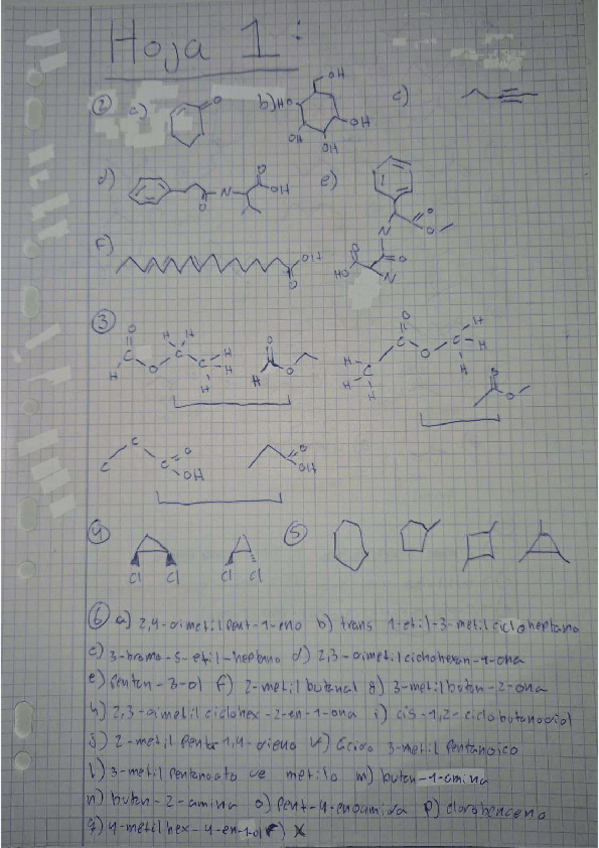 Hoja 1:
② a) O b) OH HO OH OH OH c)
d) O N O OH e) O O N O HO O N
f) OH O
③ O C H O H H C C H H H O H O O C C H H H O H C H H O O
C C C O OH O OH
④ Cl Cl Cl Cl ⑤
⑥ a) 2,4-dimetilpent-1-eno b) trans 1-etil-3-metilcicloheptano
c) 3-bromo-5-etil-heptano d) 2,3-dimetilciclohexan-1-ona
e) penten-3-ol f) 2-metilbutanal g) 3-metilbutan-2-ona
h) 2,3-dimetilciclohex-2-en-1-ona i) cis-1,2-ciclobutanodiol
j) 2-metil penta-1,4-dieno k) ácido 3-metil pentanoico
l) 3-metil pentanoato de metilo m) butan-1-amina
n) butan-2-amina o) pent-4-enoamida p) clorobenceno
q) 4-metilhex-4-en-1-ol r) X